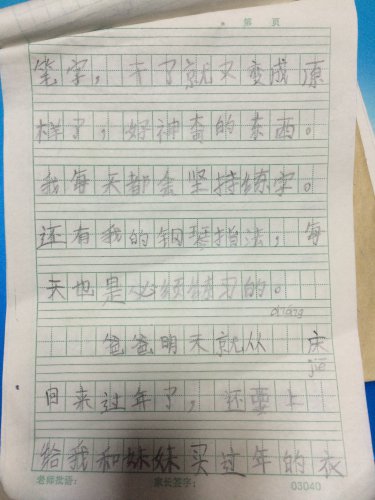 第 页
笔字，干了就又变成原
样了，好神奇的东西。
我每天都会坚持练字。
还有我的钢琴指法，每
天也是必须练习的。
爸爸明天就从 庆
jiē
回来过年了，还要上
给我和妹妹买过年的衣
老师批语： 家长签字： 03040